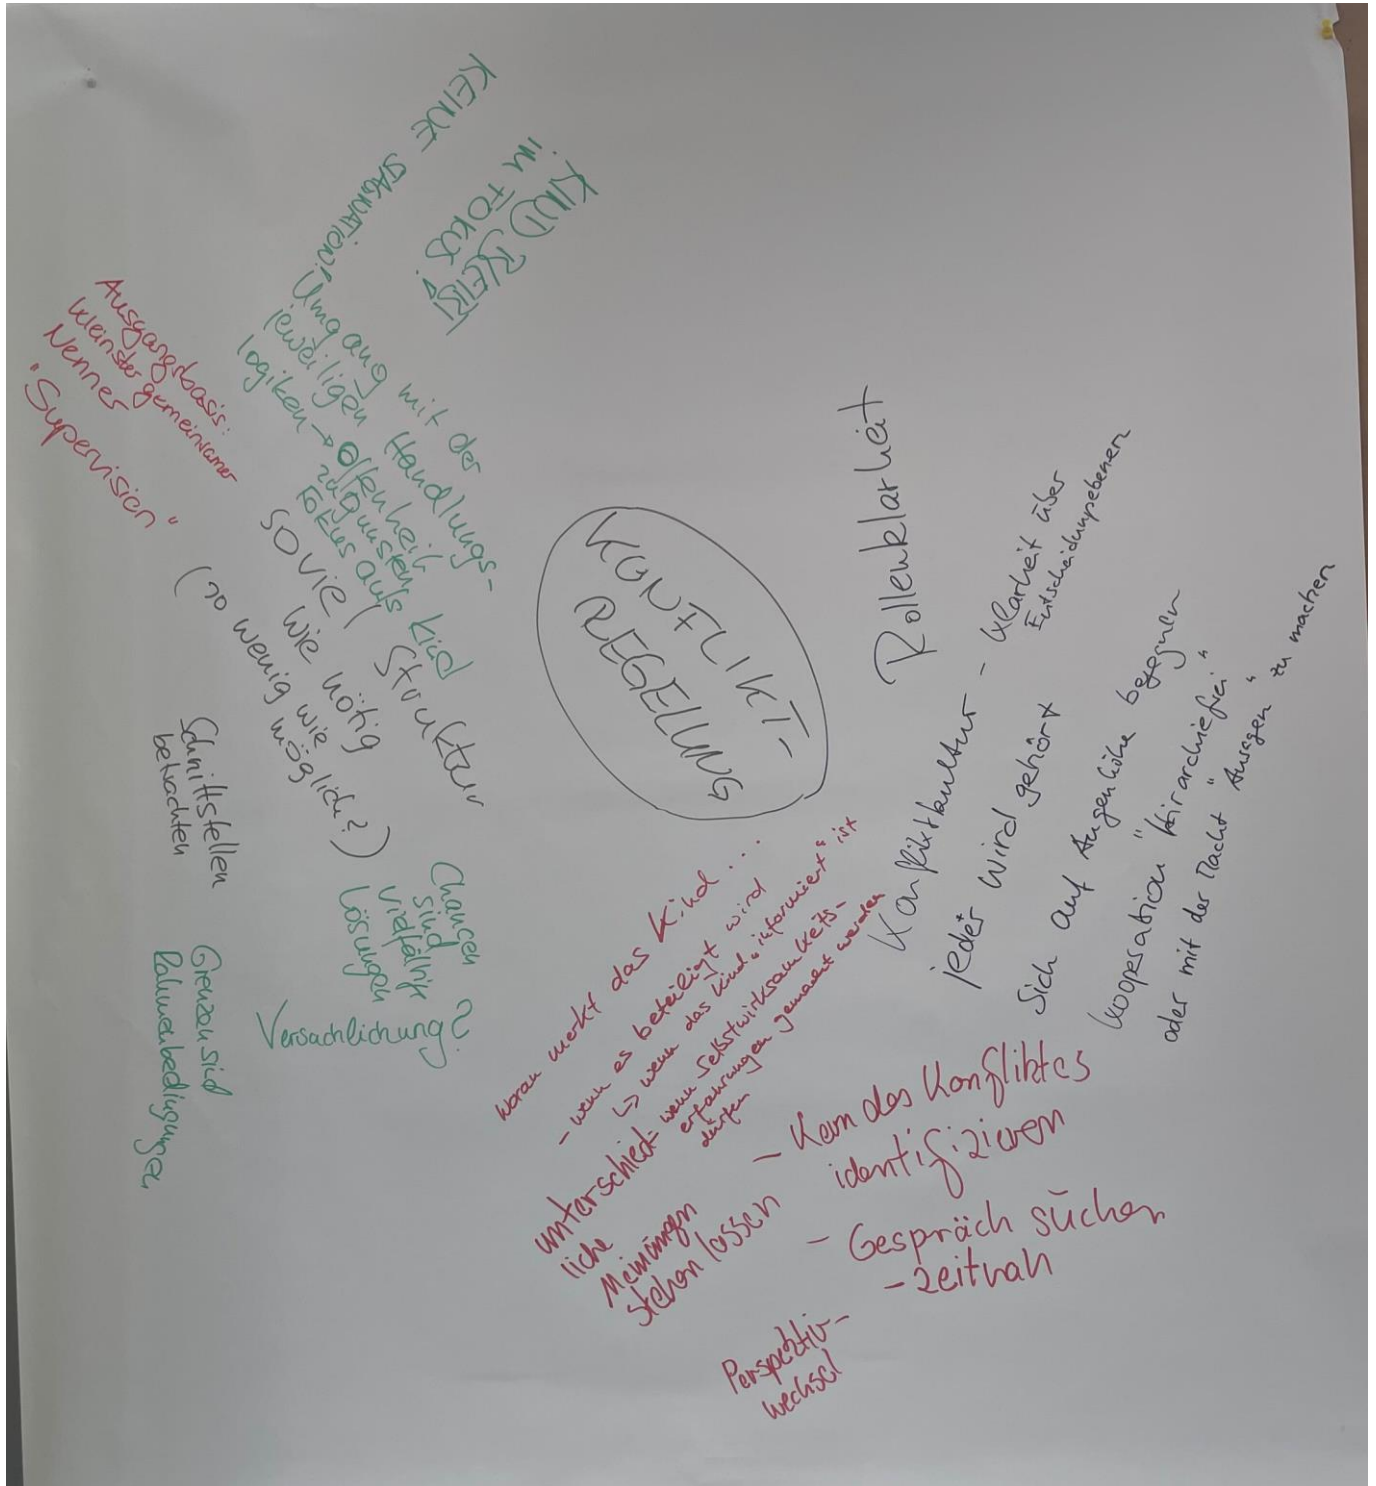 KONFLIKT-
REGELUNG
KEINE STAGNATION!
KIND BLEIBT
IM FOKUS!
Umgang mit der
jeweiligen Handlungs-
logiken → Offenheit
zugunsten
Fokus aufs Kind
Ausgangsbasis:
kleinster gemeinsamer
Nenner
"Supervision"
soviel Struktur
wie nötig
(so wenig wie
möglich?)
Schnittstellen
betrachten
Chancen
sind
vielfältige
Lösungen
Versachlichung?
Grenzen sind
Rahmenbedingungen
Rollenklarheit
Konfliktkultur - Klarheit über
Entscheidungsebenen
jeder wird gehört
Sich auf Augenhöhe begegnen
Kooperation "hirarchiefrei"
oder mit der Macht "Ansagen" zu machen
woran merkt das Kind...
- wenn es beteiligt wird
↳ wenn das Kind "informiert" ist
- wenn Selbstwirksamkeits-
erfahrungen gemacht werden
dürfen
unterschied-
liche
Meinungen
stehen lassen
- Kern des Konfliktes
identifizieren
- Gespräch suchen
- zeitnah
Perspektiv-
wechsel